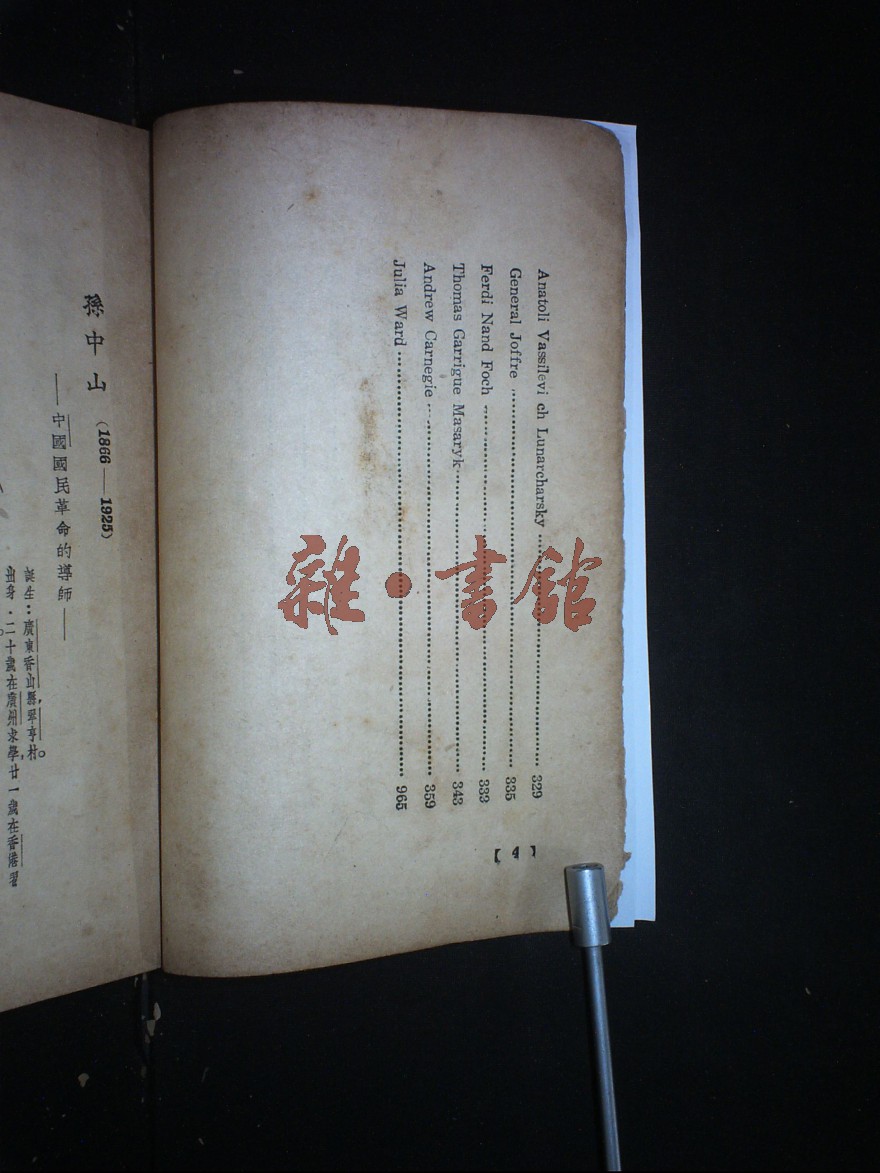 Anatoli Vassilevi ch Lunarcharsky 329
General Joffre 335
Ferdi Nand Foch 339
Thomas Garrigue Masaryk 343
Andrew Carnegie 359
Julia Ward 965
【4】
雜·書館
孫中山 (1866——1925)
——中國國民革命的導師——
誕生：廣東香山縣翠亨村。
出身．二十歲在廣州求學，廿一歲在香港習